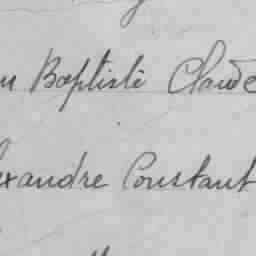 Baptiste Claude
exandre Constant